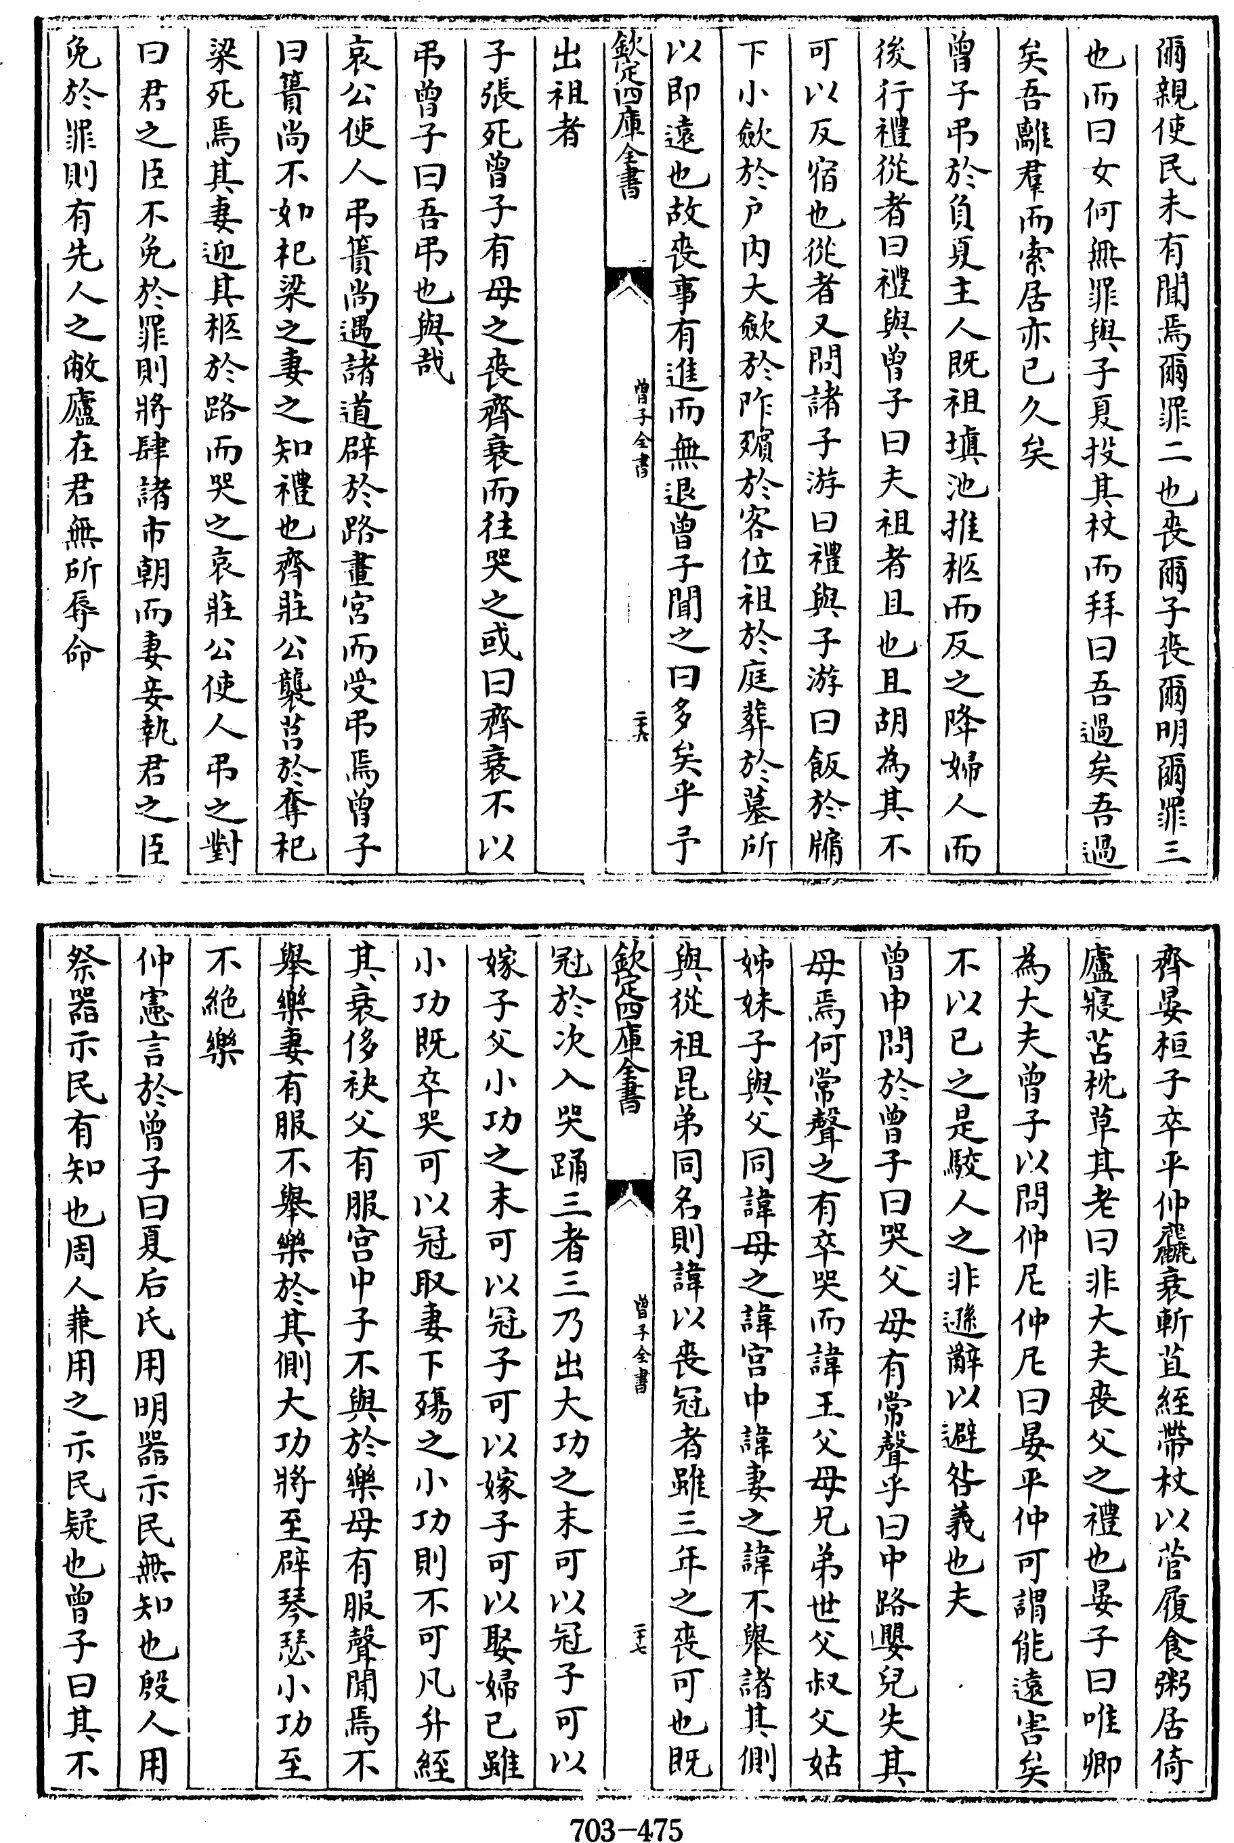 爾親使民未有聞焉爾罪二也喪爾子喪爾明爾罪三
也而曰女何無罪與子夏投其杖而拜曰吾過矣吾過
矣吾離羣而索居亦已久矣
曾子弔於負夏主人既祖填池推柩而反之降婦人而
後行禮從者曰禮與曾子曰夫祖者且也且胡為其不
可以反宿也從者又問諸子游曰禮與子游曰飯於牖
下小斂於戶內大斂於阼殯於客位祖於庭葬於墓所
以即遠也故喪事有進而無退曾子聞之曰多矣乎予
欽定四庫全書
曾子全書
二十六
出祖者
子張死曾子有母之喪齊衰而往哭之或曰齊衰不以
弔曾子曰吾弔也與哉
哀公使人弔蕢尚遇諸道辟於路畫宮而受弔焉曾子
曰蕢尚不如杞梁之妻之知禮也齊莊公襲莒於奪杞
梁死焉其妻迎其柩於路而哭之哀莊公使人弔之對
曰君之臣不免於罪則將肆諸市朝而妻妾執君之臣
免於罪則有先人之敝廬在君無所辱命
齊晏桓子卒平仲麤衰斬苴絰帶杖以菅履食粥居倚
廬寢苫枕草其老曰非大夫喪父之禮也晏子曰唯卿
為大夫曾子以問仲尼仲尼曰晏平仲可謂能遠害矣
不以己之是駮人之非遜辭以避咎義也夫
曾申問於曾子曰哭父母有常聲乎曰中路嬰兒失其
母焉何常聲之有卒哭而諱王父母兄弟世父叔父姑
姊妹子與父同諱母之諱宮中諱妻之諱不舉諸其側
與從祖昆弟同名則諱以喪冠者雖三年之喪可也既
欽定四庫全書
曾子全書
二十七
冠於次入哭踊三者三乃出大功之末可以冠子可以
嫁子父小功之末可以冠子可以嫁子可以娶婦己雖
小功既卒哭可以冠取妻下殤之小功則不可凡弁絰
其衰侈袂父有服宮中子不與於樂母有服聲聞焉不
舉樂妻有服不舉樂於其側大功將至辟琴瑟小功至
不絕樂
仲憲言於曾子曰夏后氏用明器示民無知也殷人用
祭器示民有知也周人兼用之示民疑也曾子曰其不
703-475